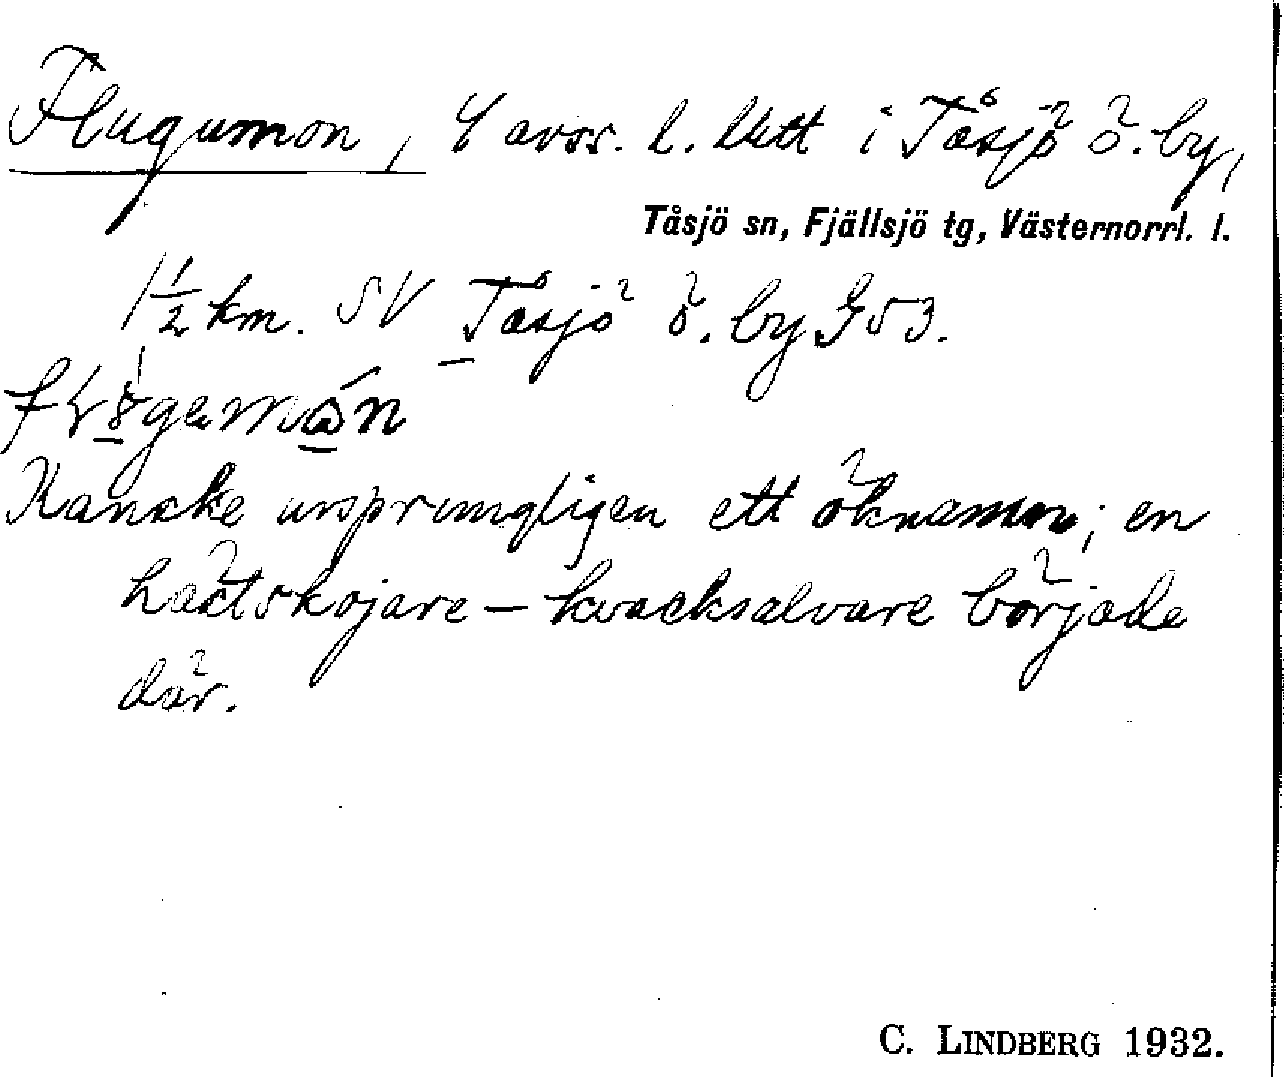 Flugumon, 4 avss. l. litt i Tåsjö ö. by,
Tåsjö sn, Fjällsjö tg, Västernorrl. l.
1½ km. SV Tåsjö ö. by G 53.
Kanske ursprungligen ett öknamn; en
hästskojare – kvacksalvare började
där.
C. LINDBERG 1932.